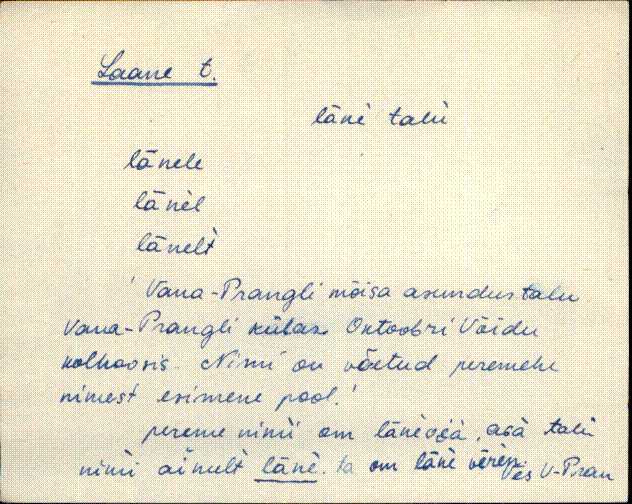 Laane t.
lānè talù
lānele
lānèl
lānelt
' Vana-Prangli mõisa asundustalu
Vana-Prangli külas Oktoobri Võidu
kolhoosis. Nimi on võetud peremehe
nimest esimene pool.'
pereme nimi om lāneojà, asà talù
nimi ainult lānè. ta om lānè vēren
V-Pran